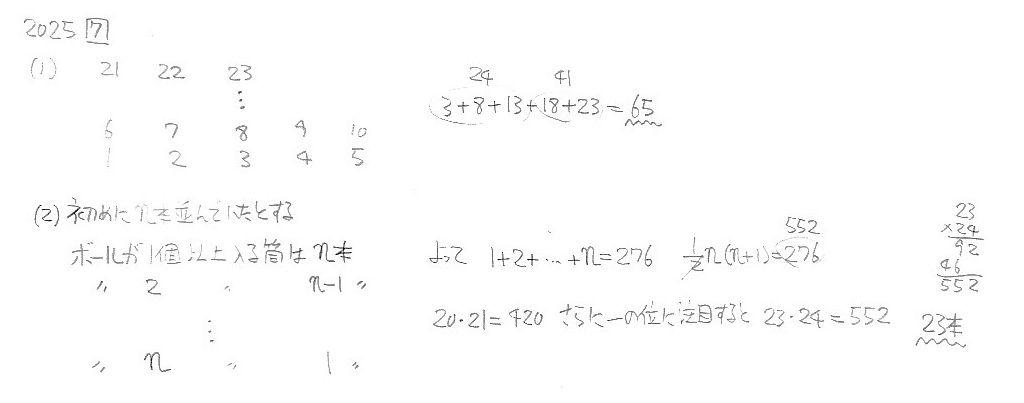 2025 7
(1) 21 22 23
⋮
6 7 8 9 10
1 2 3 4 5
24 41
3+8+13+18+23=65
(2) 初めにn本並んでいたとする
ボールが1個以上入る筒はn本
〃 2 〃 n-1 〃
⋮
〃 n 〃 1 〃
よって 1+2+…+n=276 1/2n(n+1)=276
552
20・21=420 さらに一の位に注目すると 23・24=552 23本
23
×24
92
46
552